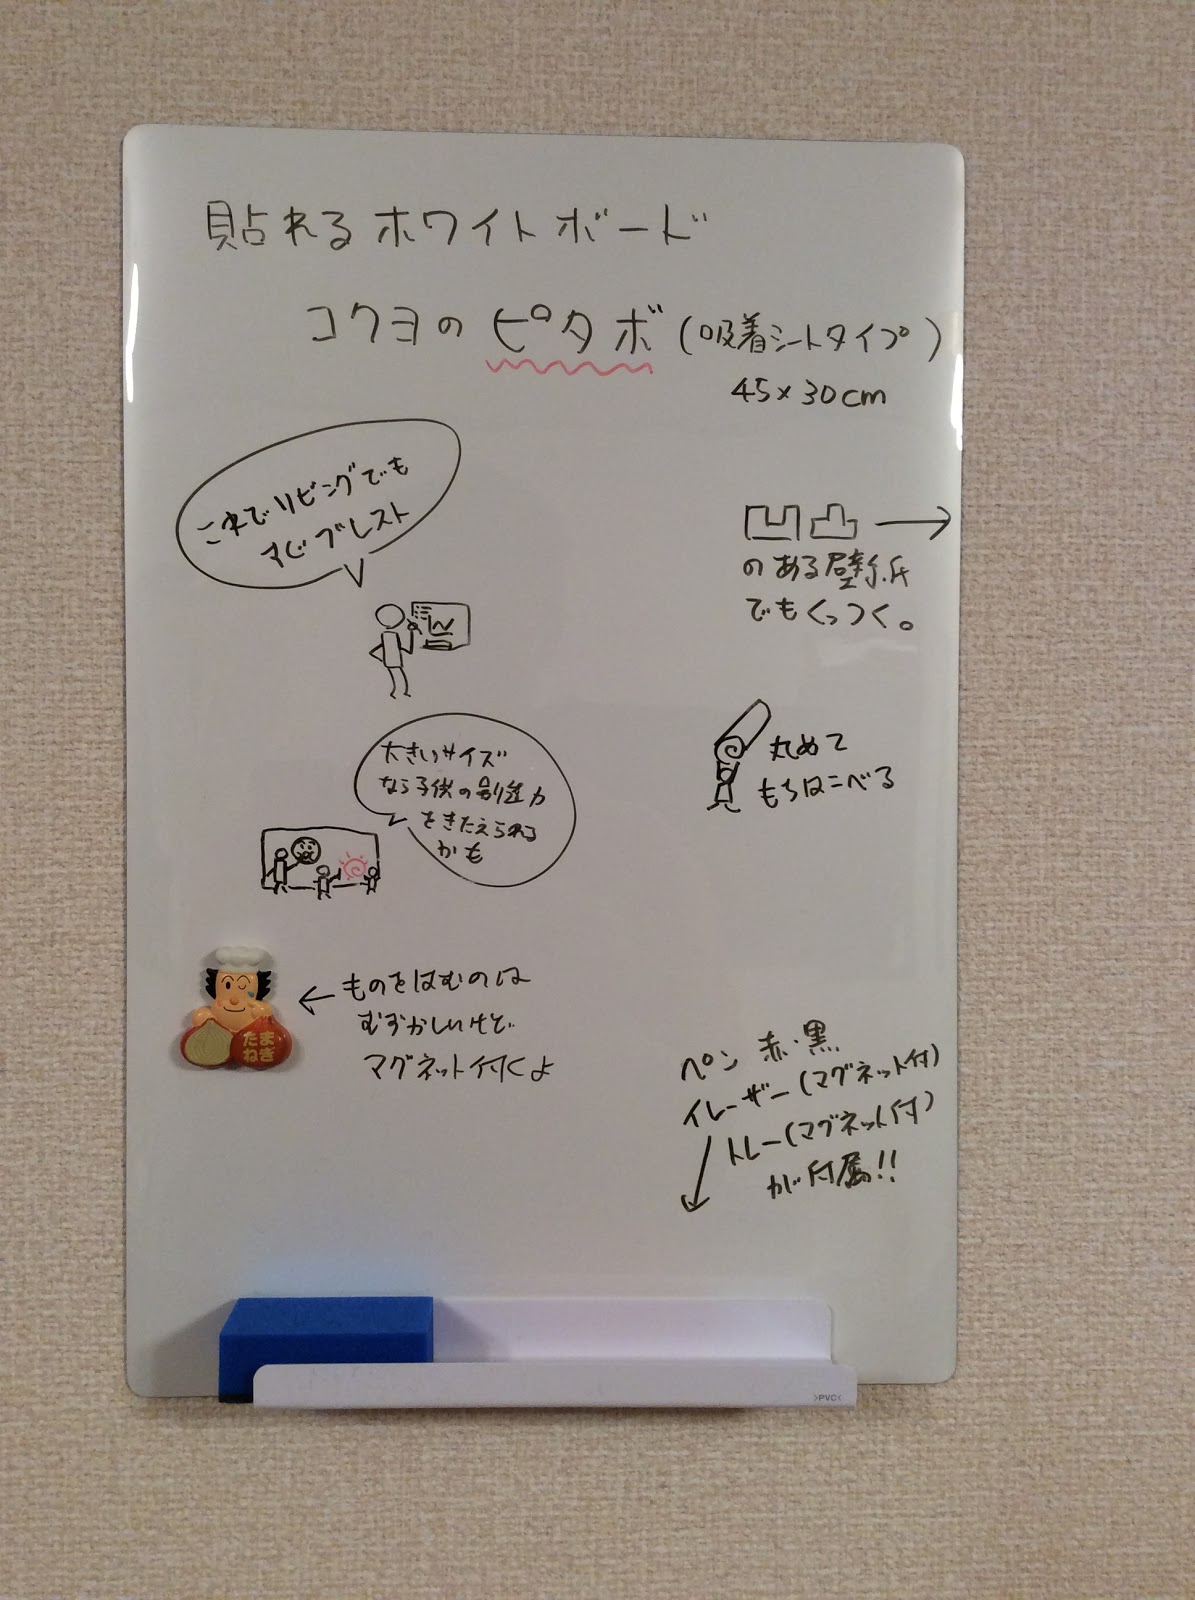 貼れるホワイトボード
コクヨのピタボ(吸着シートタイプ)
45×30cm
これでリビングでも
すぐブレスト
凹凸→
のある壁紙
でもくっつく。
大きいサイズ
なら子供の創造力
をきたえられる
かも
丸めて
もちはこべる
たま
ねぎ
←ものをはむのは
むずかしいけど
マグネット付くよ
ペン 赤・黒
イレーザー(マグネット付)
トレー(マグネット付)
が付属!!
>PVC<